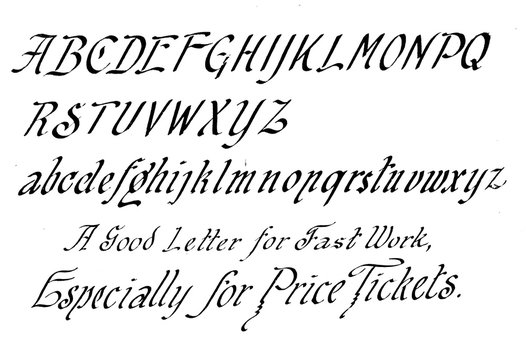 ABCDEFGHIJKLMONPQ
RSTUVWXYZ
abcdefghijklmnopqrstuvwxyz
A Good Letter for Fast Work,
Especially for Price Tickets.